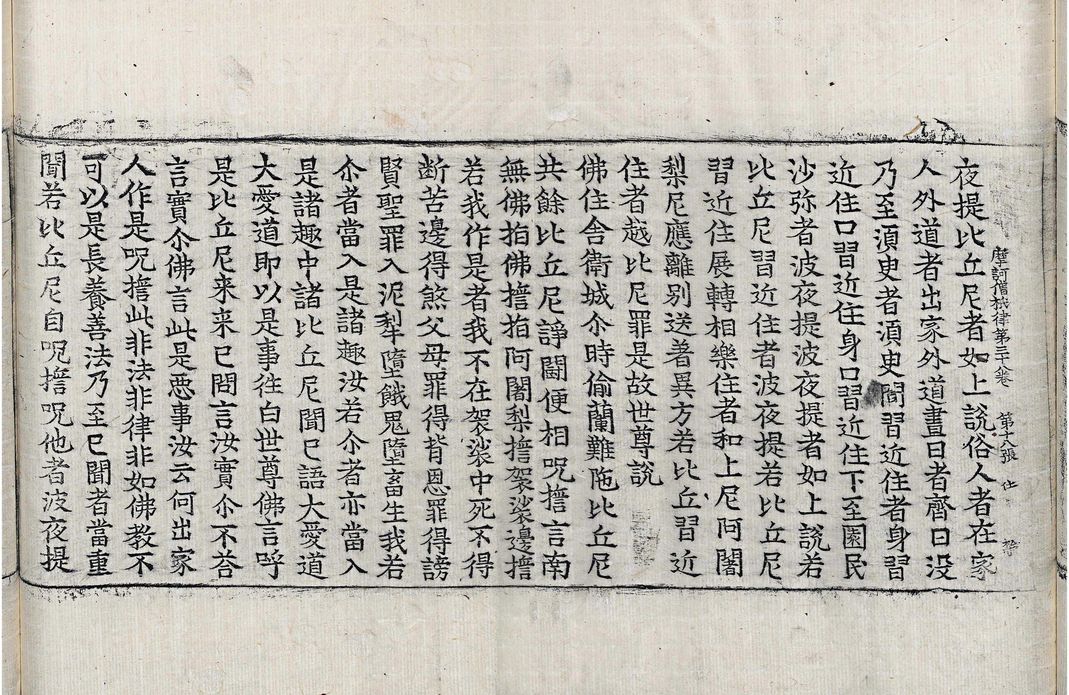 夜提比丘尼者如上說俗人者在家
摩訶僧祇律第三十八卷 第十六張 仕
人外道者出家外道晝日者齊日没
乃至湏㬰者湏㬰間習近住者身習
近住口習近住身口習近住下至園民
沙弥者波夜提波夜提者如上說若
比丘尼習近住者波夜提若比丘尼
習近住展轉相樂住者和上尼阿闍
梨尼應離別送著異方若比丘習近
住者越比尼罪是故世尊說
佛住舍衛城尒時偷蘭難陁比丘尼
共餘比丘尼諍鬪便相呪㨼言南
無佛指佛㨼指阿闍梨㨼袈裟邊㨼
若我作是者我不在袈裟中死不得
断苦邊得煞父母罪得背恩罪得謗
賢聖罪入泥犁墮餓鬼墮畜生我若
尒者當入是諸趣汝若尒者亦當入
是諸趣中諸比丘尼聞已語大愛道
大愛道即以是事往白世尊佛言呼
是比丘尼来来已問言汝實尒不荅
言實尒佛言此是悪事汝云何出家
人作是呪㨼此非法非律非如佛教不
可以是長養善法乃至已聞者當重
聞若比丘尼自呪㨼呪他者波夜提